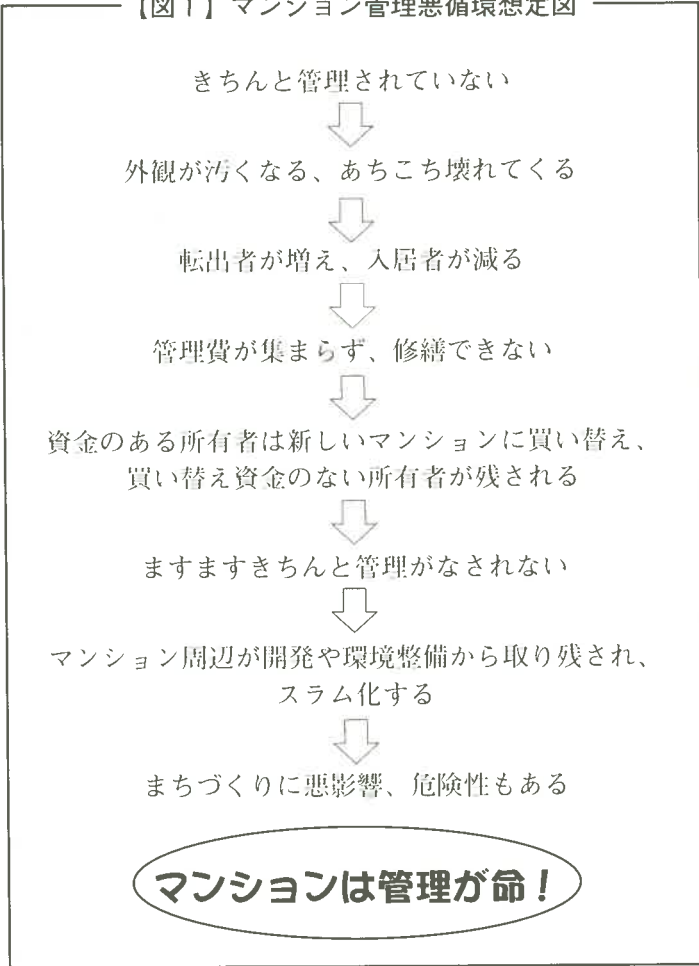 【図1】マンション管理悪循環想定図
きちんと管理されていない
外観が汚くなる、あちこち壊れてくる
転出者が増え、入居者が減る
管理費が集まらず、修繕できない
資金のある所有者は新しいマンションに買い替え、
買い替え資金のない所有者が残される
ますますきちんと管理がなされない
マンション周辺が開発や環境整備から取り残され、
スラム化する
まちづくりに悪影響、危険性もある
マンションは管理が命！